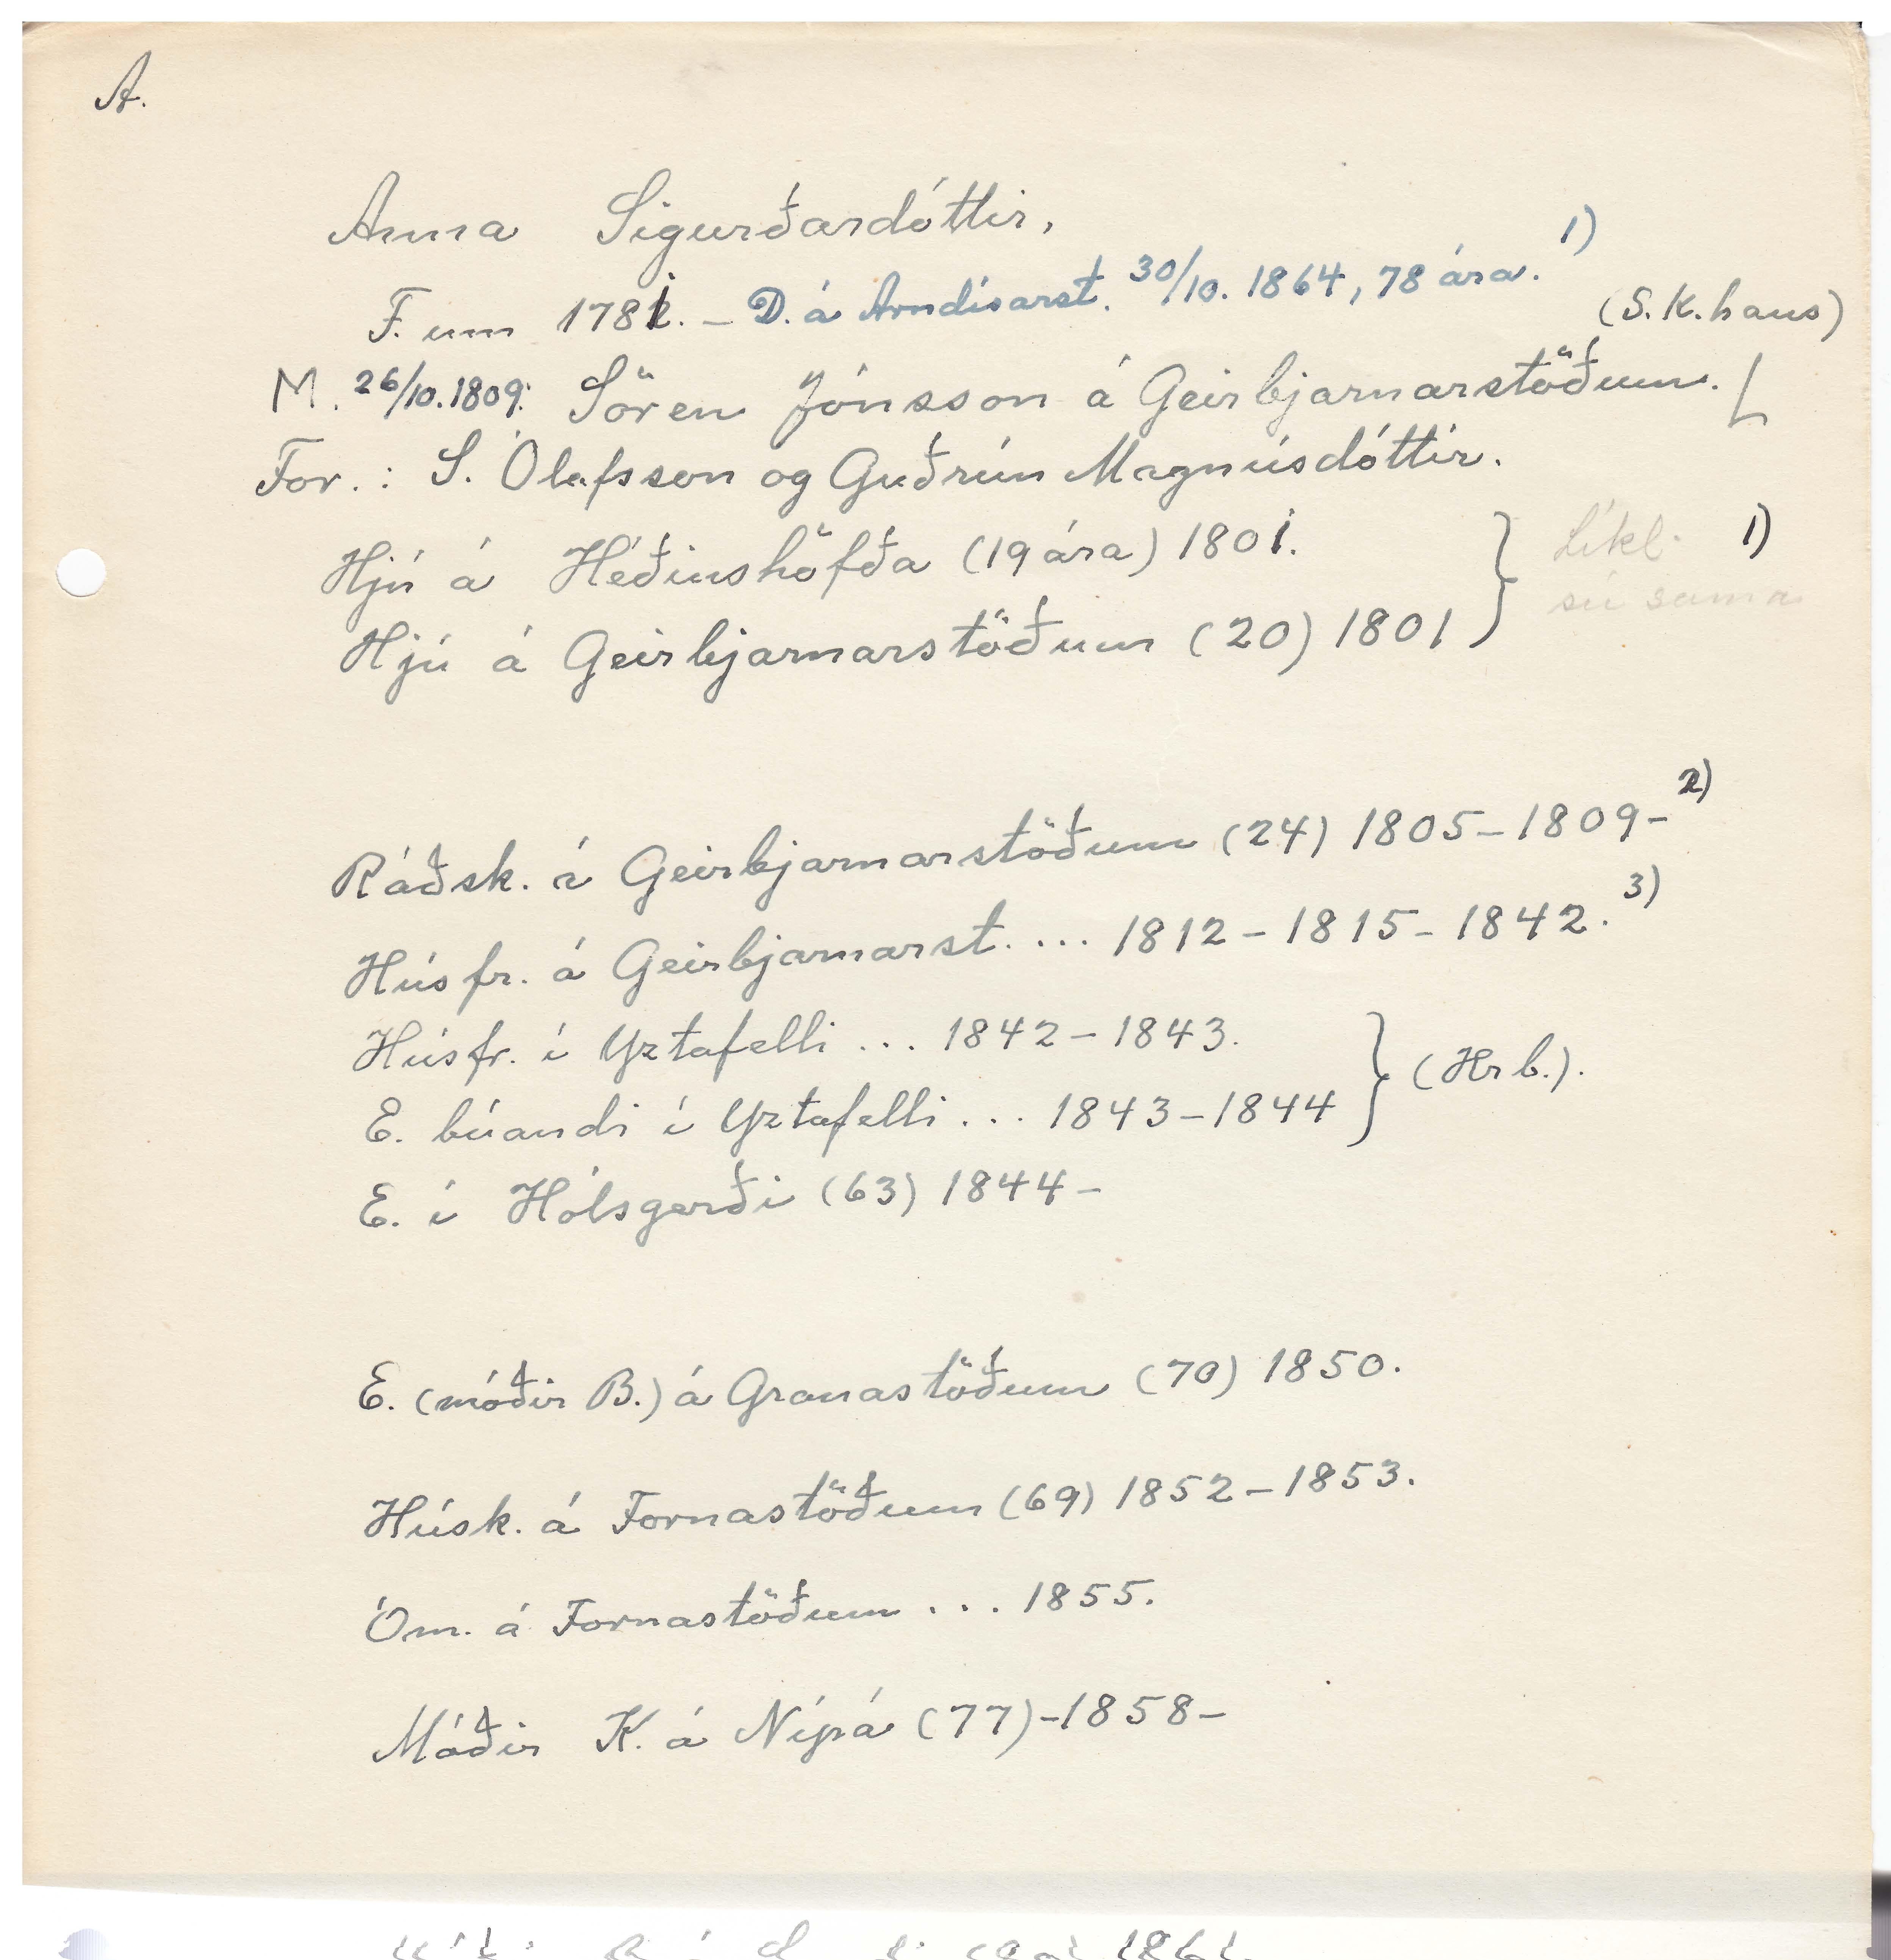 A.
Anna Sigurðardóttir,
F. um 1781. – D. á Arndísarst. 30/10. 1864, 78 ára. 1)
(S. K. hans)
M. 26/10. 1809: Sören Jónsson á Geirbjarnarstöðum. [
For.: S. Ólafsson og Guðrún Magnúsdóttir.
Hjú á Héðinshöfða (19 ára) 1801. } Líkl. 1)
Hjú á Geirbjarnarstöðum (20) 1801 sú sama
Ráðsk. á Geirbjarnarstöðum (24) 1805–1809– 2)
Húsfr. á Geirbjarnarst. ... 1812–1815–1842. 3)
Húsfr. í Yztafelli ... 1842–1843. } (Hrb.).
E. búandi í Yztafelli ... 1843–1844
E. í Hólsgerði (63) 1844–
E. (móðir B.) á Granastöðum (70) 1850.
Húsk. á Fornastöðum (69) 1852–1853.
Óm. á Fornastöðum ... 1855.
Móðir K. á Nípá (77)–1858–